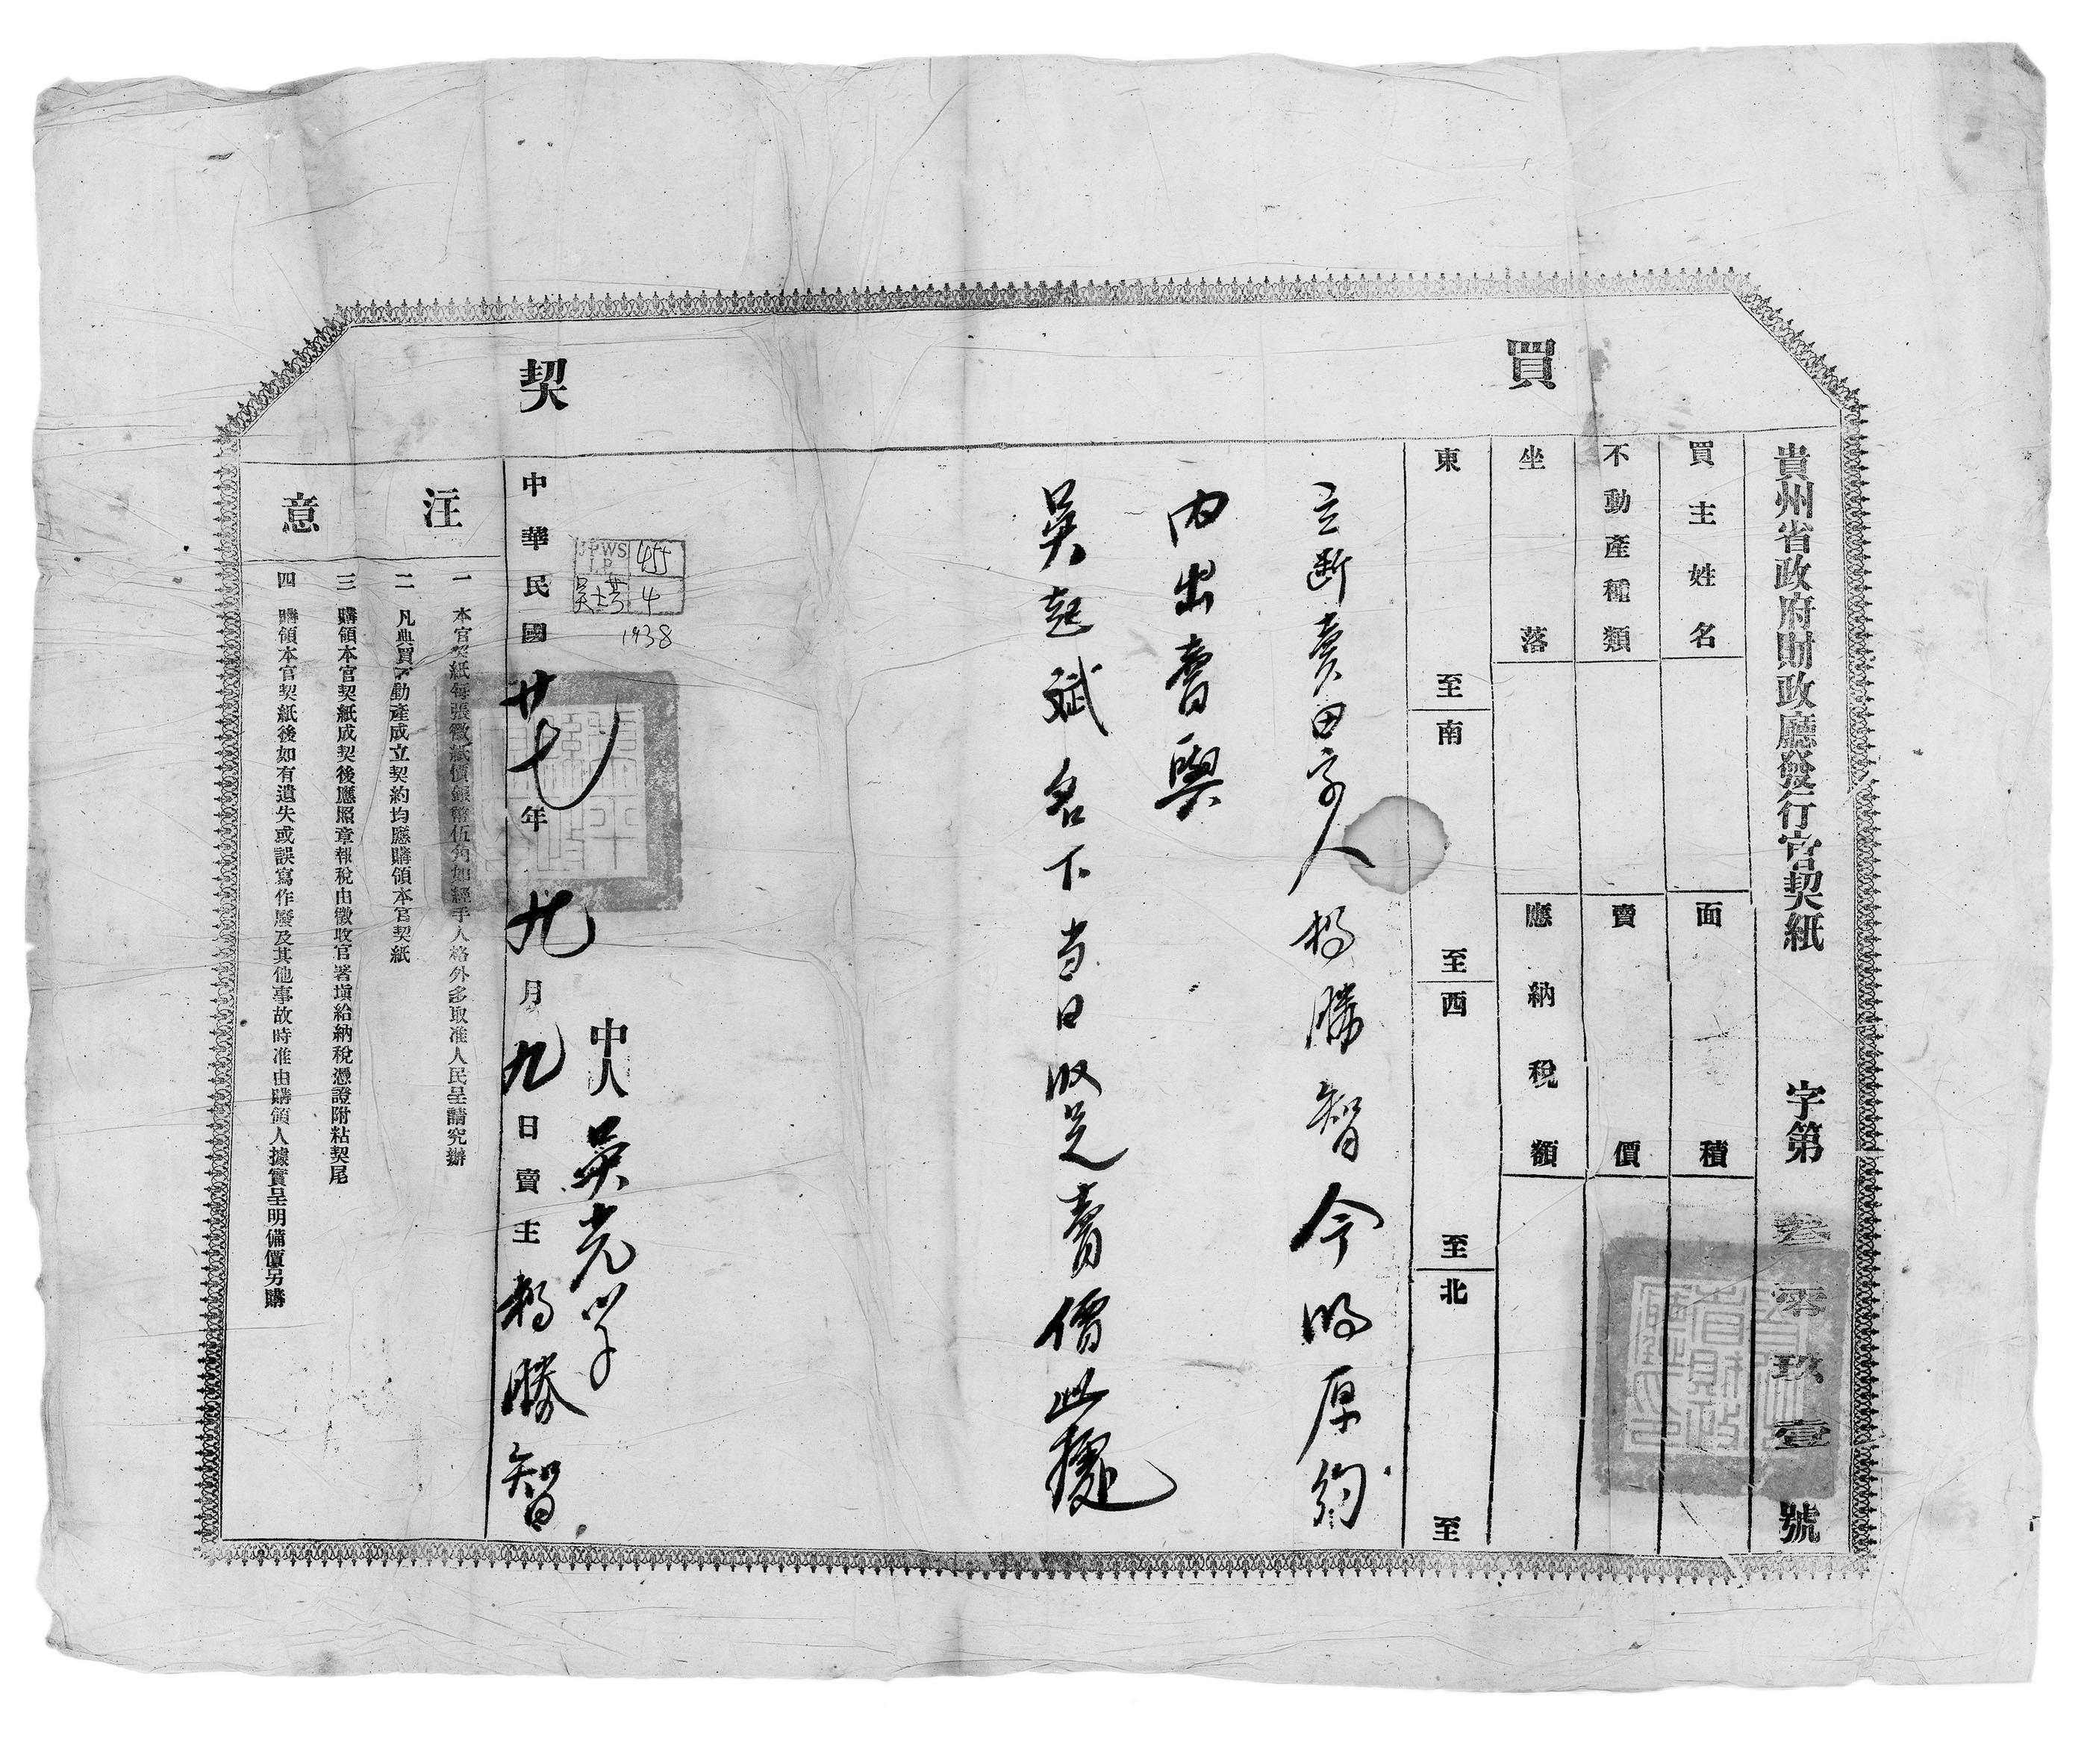 買契
貴州省政府財政廳發行官契紙 字第叁零玖壹號
買主姓名 面積
不動產種類 賣價
坐落 應納稅額
東至 南至 西至 北至
立断賣田字人楊勝智今將原約
內出賣與
吳起斌名下当日收足賣價此據
中人 吳光学
JPWS
I.P.
455
吳士芳
4
1938
中華民國廿七年九月九日賣主楊勝智
注意
一 本官契紙每張徵紙價銀幣伍角如經手人格外多取准人民呈請究辦
二 凡典買不動產成立契約均應購領本官契紙
三 購領本官契紙成契後應照章報稅由徵收官署填給納稅憑證附粘契尾
四 購領本官契紙後如有遺失或誤寫作廢及其他事故時准由購領人據實呈明備價另購